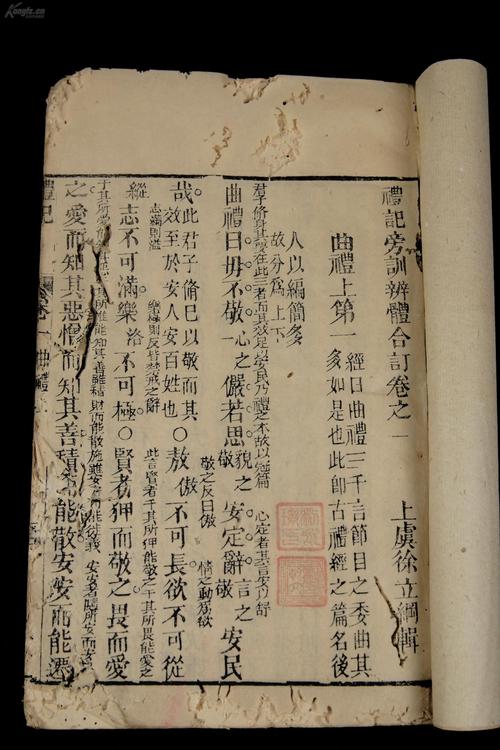 禮記旁訓辨體合訂卷之一
上虞徐立綱輯
曲禮上第一
經曰曲禮三千言節目之委曲其
多如是也此即古禮經之篇名後
人以編簡多
故分為上下
君子脩身其要在此三者而其效足以安民乃禮之本故以冠篇
心定者其言安以舒
曲禮曰毋不敬心之儼若思貌之敬安定辭言之敬安民
敬之反曰傲
情之動為欲
哉此君子脩己以敬而其效至於安人安百姓也〇敖傲不可長欲不可從
志滿則溢
樂極則反皆禁戒之辭
此言賢者于其所狎能敬之于其所畏能愛之
縱志不可滿樂洛不可極〇賢者狎而敬之畏而愛
之愛而知其惡憎而知其善積而能散安安而能遷
禮記
卷一
曲禮上
Kongfz.cn